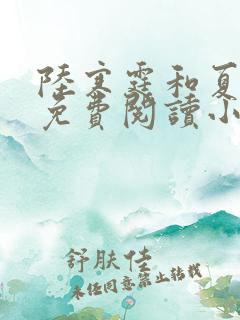 陸寒霆和夏
免費閱讀小
舒肤佳
未经同意禁止转载